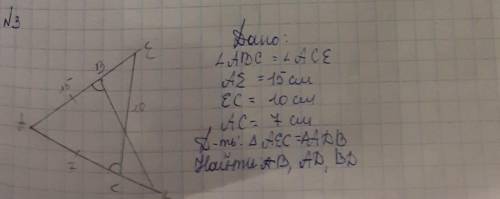 №3
Дано:
∠ADC = ∠ACE
AE = 15 см
EC = 10 см
AC = 7 см
Д-ть: △AEC = △ADB
Найти AB, AD, BD
E
B
15
10
A
7
C